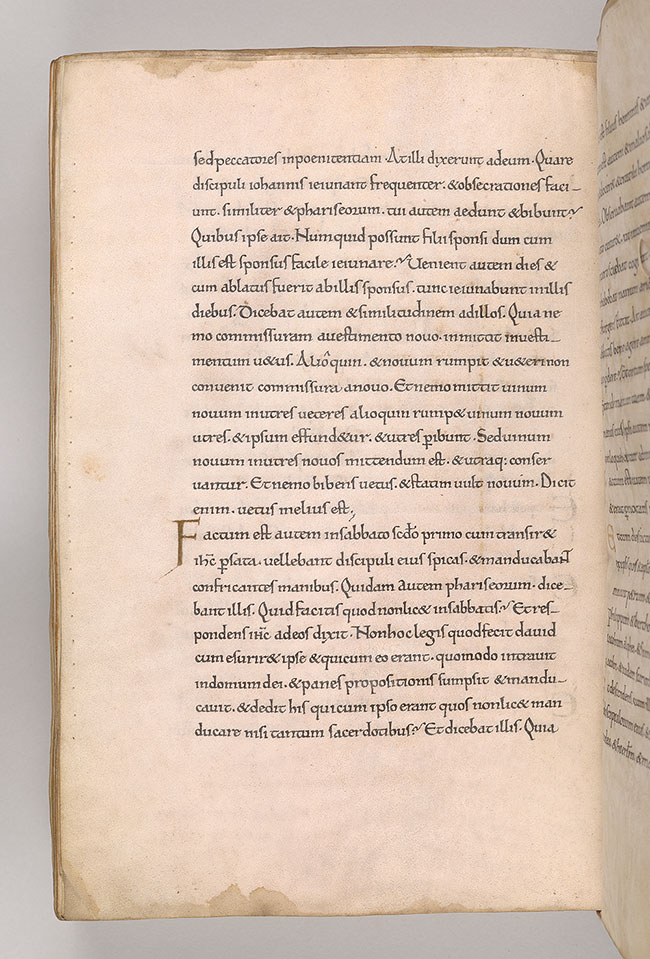 sed peccatores in poenitentiam. At illi dixerunt ad eum. Quare
discipuli iohannis ieiunant frequenter. & obsecrationes faci-
unt. similiter & phariseorum. tui autem aedunt & bibunt?
Quibus ipse ait. Numquid possunt filii sponsi dum cum
illis est sponsus facile ieiunare? Uenient autem dies &
cum ablatus fuerit ab illis sponsus. tunc ieiunabunt in illis
diebus. Dicebat autem & similitudinem ad illos. Quia ne
mo commissuram a uestimento nouo. inmittit in uesti-
mentum u&us. Alioquin. & nouum rumpit & u&eri non
conuenit commissura a nouo. Et nemo mittit uinum
nouum in utres ueteres alioquin rump& uinum nouum
utres. & ipsum effund&ur. & utres p̲ibunt. Sed uinum
nouum in utres nouos mittendum est. & utraq: conser
uantur. Et nemo bibens uetus. & statim uult nouum. Dicit
enim. uetus melius est,
Factum est autem in sabbato scd̄o primo cum transir&
ih̄c p̲ sata. uellebant discipuli eius spicas. & manducabant̄
confricantes manibus. Quidam autem phariseorum. dice-
bant illis. Quid facitis quod non lic& in sabbatis? Et res-
pondens ih̄c ad eos dixit. Non hoc legis quod fecit dauid
cum esurir& ipse & qui cum eo erant. quomodo intrauit
in domum dei. & panes propositionis sumpsit & mandu-
cauit. & dedit his qui cum ipso erant quos non lic& man
ducare nisi tantum sacerdotibus? Et dicebat illis. Quia